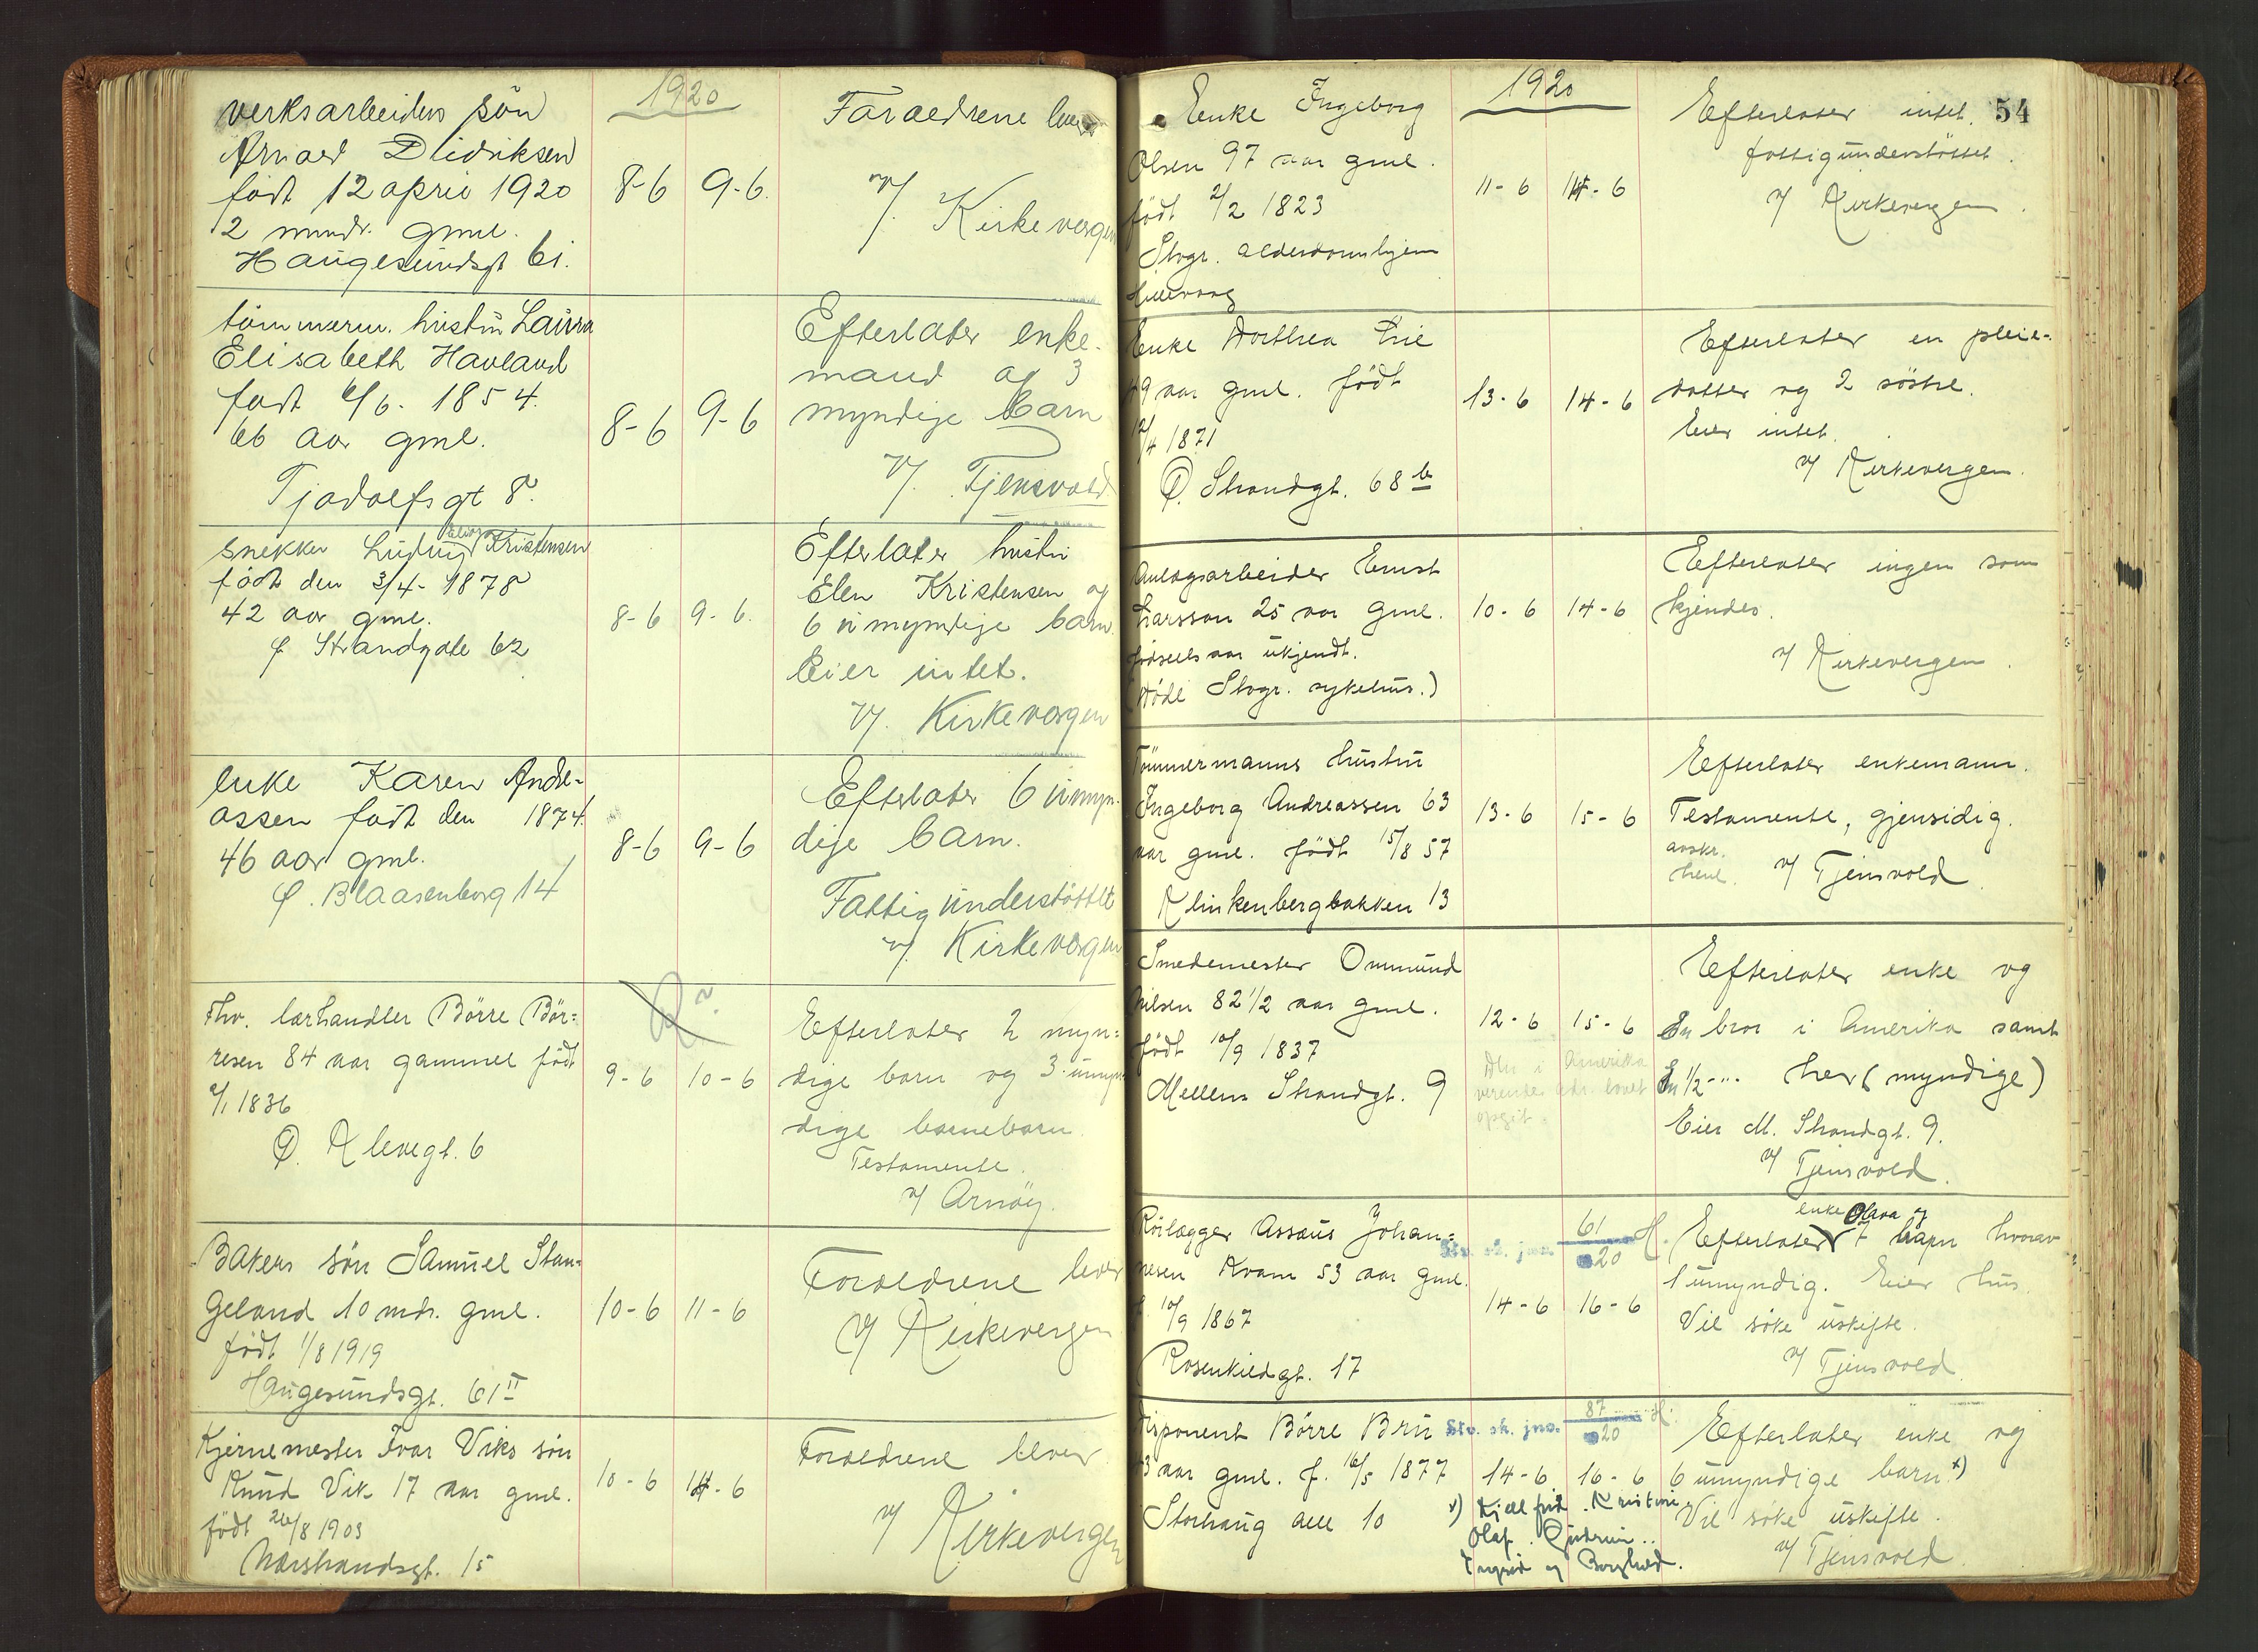 1920
verksarbeiders sön
Arnold Didriksen
födt 12 april 1920
2 mndr. gml.
Haugesundsgt 61.
8-6 9-6.
Foraeldrene lever
v/. Kirkevergen
tömmerm. hustru Laura
Elisabeth Havland
födt 6/6. 1854.
66 aar gml.
Tjodolfsgt 8.
8-6 9-6
Efterlater enke-
mand og 3
myndige barn
v/. Tjensvold
snekker Ludvig Kristensen
födt den 3/4- 1878
42 aar gml.
Ø Strandgate 62
8-6 9-6.
Efterlater hustru
Elen Kristensen og
6 umyndige barn.
Eier intet.
v/. Kirkevergen
Enke Karen Andre-
assen födt den 1874.
46 aar gml.
Ø. Blaasenborg 14
8-6 9-6
Efterlater 6 umyn-
dige barn.
Fattigunderstöttet
v/. Kirkevergen
Fhv. lærhandler Börre Bör=
resen 84 aar gammel födt
1836
Ø. Klevegt. 6
9-6 10-6
Efterlater 2 myn=
dige barn og 3 umyn=
dige barnebarn
Testamente.
v/ Arnöy.
Bakers sön Samuel Stan=
geland 10 mdr. gml.
födt 1/8 1919
Haugesundsgt. 61 II
10-6 11-6
Foraeldrene lever
v/ Kirkevergen
Kjernemester Ivar Viks sön
Knud Vik 17 aar gml.
födt 26/8 1903
Nærstrandsgt. 15
10-6 14-6
Foraeldrene lever
v/ Kirkevergen
1920
54
Enke Ingeborg
Olsen 97 aar gml.
födt 2/2 1823
Stvgr. alderdomshjem
Hillevaag
11-6 14-6
Efterlater intet.
fattigunderstöttet.
v/ Kirkevergen.
Enke Dorthea Lie
49 aar gml. födt
12/4 1871
Ø. Strandgt. 68 b
13-6 14-6
Efterlater en pleie-
datter og 2 söstre.
Eier intet.
v/ Kirkevergen.
Anlægsarbeider Ernst
Larsson 25 aar gml.
födsels aar ukjendt.
(Döde Stvgr. sykehus.)
10-6 14-6
Efterlater ingen som
kjendes.
v/ Kirkevergen.
Tömmermanns hustru
Ingeborg Andreassen 63
aar gml. födt 15/8 57
Klinkenbergbakken 13
13-6 15-6
Efterlater enkemann.
Testamente, gjensidig.
avskr.
v/ Tjensvold
Smedemester Ommund
Nilsen 82 1/2 aar gml.
födt 10/9 1837
Mellem Strandgt. 9
12-6 15-6
Den i Amerika
værende adr. lovet
opgit.
Efterlater enke og
En bror i Amerika samt
En 1/2 -"- her (myndige)
Eier M. Strandgt. 9.
v/ Tjensvold.
Rörlægger Assaus Johan=
nesen Kvam 53 aar gml.
f. 10/9 1867
Rosenkildgt. 17
Stv. sk. jno. 61/20 H.
14-6 16-6
enke Olava og
Efterlater 7 barn hvorav
1 umyndig. Eier hus.
Vil söke uskifte.
v/ Tjensvold
Disponent Börre Bru
43 aar gml. f. 16/5 1877
Storhaug alle 10
Stv. sk. jno. 87/20 H.
14-6 16-6
x) Kjellfrid. Kristine.
Olaf. Gudrun..
Ingrid og Borghild.
Efterlater enke og
6 umyndige barn x)
Vil söke uskifte.
v/ Tjensvold.